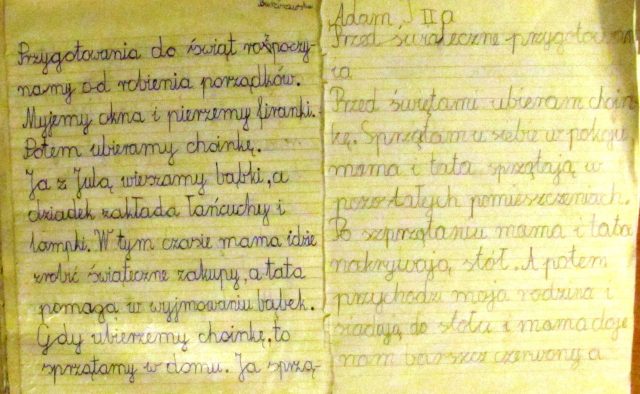 Przygotowania do świąt rospoczy-
namy od robienia porządków.
Myjemy okna i pierzemy firanki.
Potem ubieramy choinkę.
Ja z Julą wieszamy bąbki, a
dziadek zakłada łańcuchy i
lampki. W tym czasie mama idzie
zrobić świateczne zakupy, a tata
pomaga w wyjmowaniu bąbek.
Gdy ubierzemy choinkę, to
sprzątamy w domu. Ja sprzą-
Adam J II a
Przed świateczne przygotowan
ia
Przed świętami ubieram choin
kę. Sprzątam u siebie w pokoju
mama i tata sprzątają w
pozostałych pomieszczeniach.
Po szprzątaniu mama i tata
nakrywają stół. A potem
przychodzi moja rodzina i
siadują do stołu i mama daje
nam barszcz czerwony a